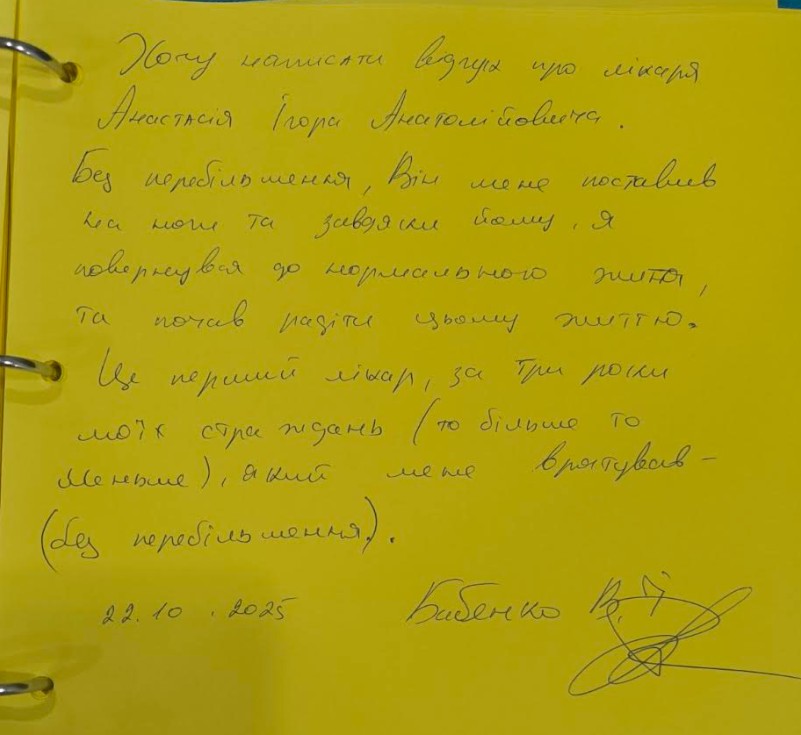 Хочу написати відгук про лікаря
Анастасія Ігора Анатолійовича.
Без перебільшення, Він мене поставив
на ноги та завдяки йому, я
повернувся до нормального життя,
та почав радіти цьому життю.
Це перший лікар, за три роки
моїх страждань (то більше то
меньше), який мене врятував –
(без перебільшення).
22.10.2025 Бабенко В.